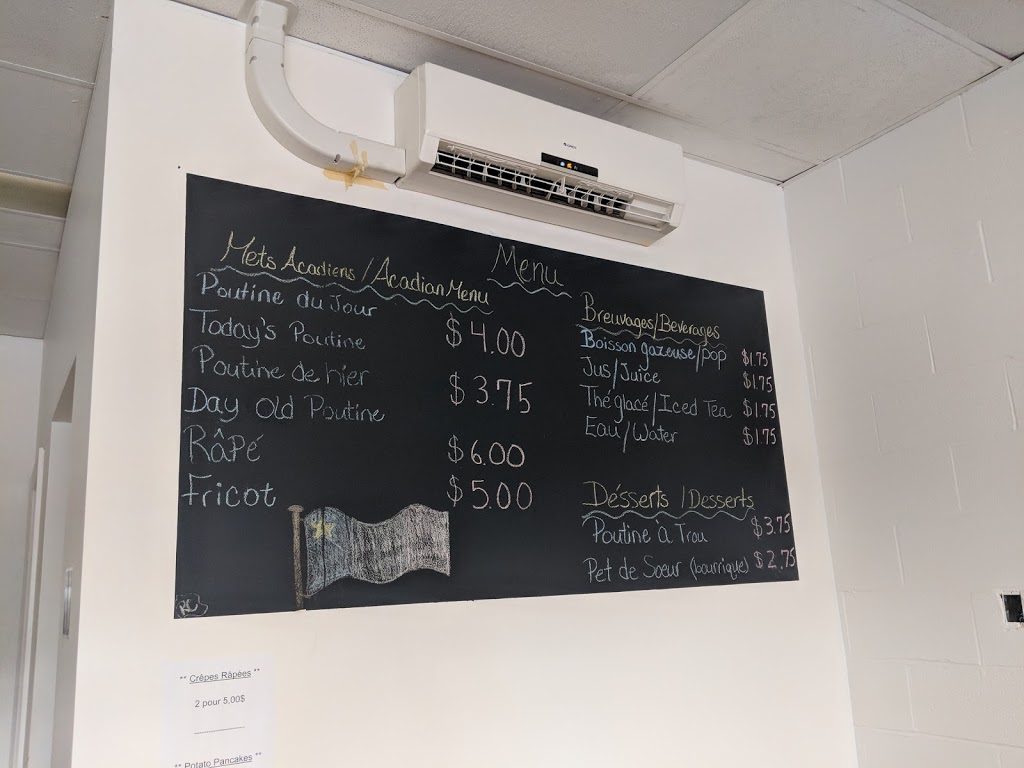 Menu
Mets Acadiens/Acadian Menu
Poutine du Jour
Today's Poutine $4.00
Poutine de hier
Day Old Poutine $3.75
Râpé $6.00
Fricot $5.00
Breuvages/Beverages
Boisson gazeuse/pop $1.75
Jus/Juice $1.75
Thé glacé/Iced Tea $1.75
Eau/Water $1.75
Désserts/Desserts
Poutine à Trou $3.75
Pet de Soeur (bourrique) $2.75
** Crêpes Râpées **
2 pour 5,00$
** Potato Pancakes **